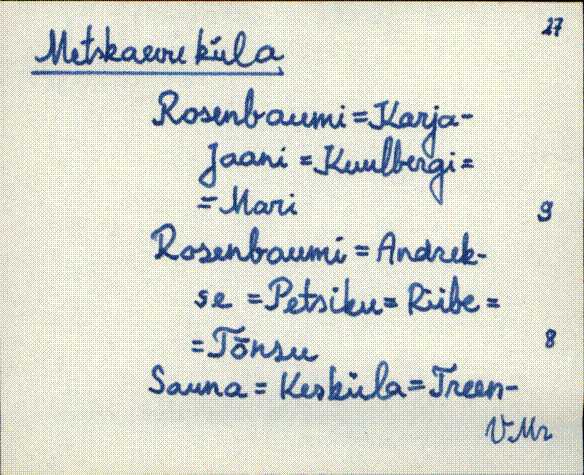 27
Metskaevu küla
Rosenbaumi = Karja-
Jaani = Kuulbergi =
= Mari 9
Rosenbaumi = Andrek-
se = Petsiku = Riibe =
= Tõnsu 8
Sauna = Kesküla = Treen-
VMr